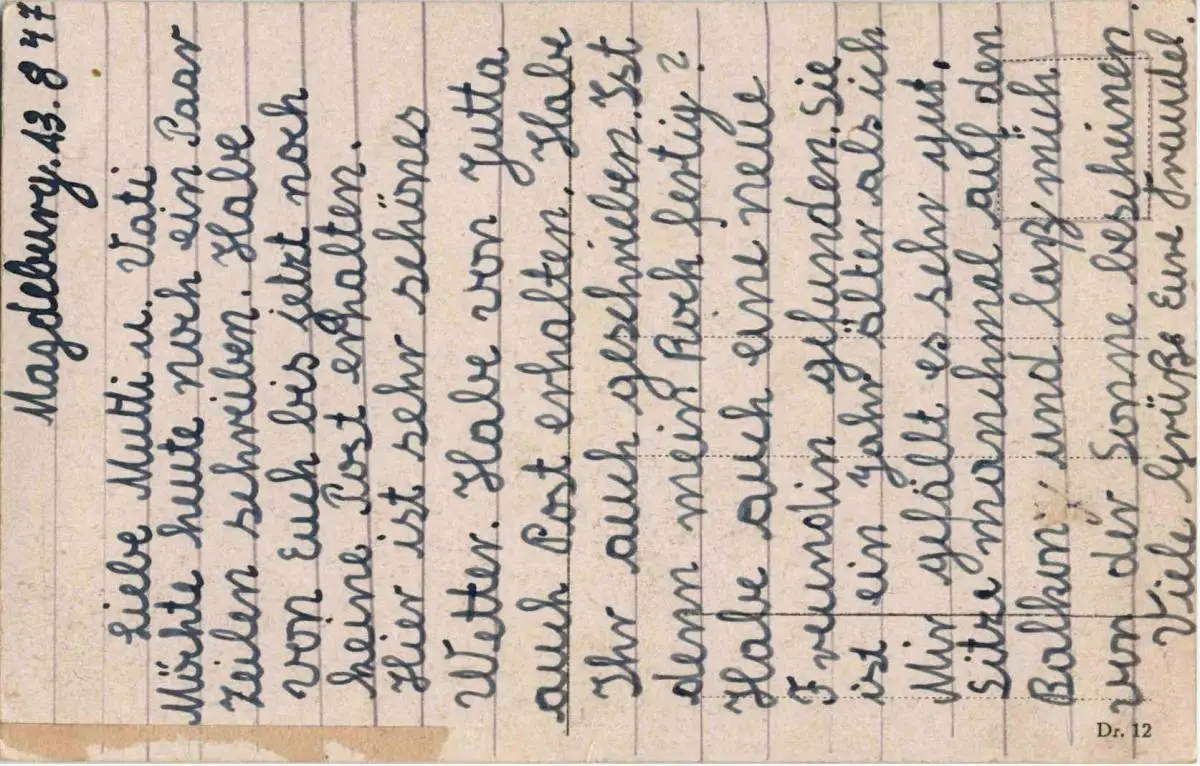 Magdeburg.13.8 47
Liebe Mutti u. Vati
Möchte heute noch ein Paar
Zeilen schreiben. Habe
von Euch bis jetzt noch
keine Post erhalten.
Hier ist sehr schönes
Wetter. Habe von Jutta
auch Post erhalten. Habe
Ihr auch geschrieben. Ist
denn mein Rock fertig?
Habe auch eine neue
Freundin gefunden. Sie
ist ein Jahr älter als ich
Mir gefällt es sehr gut.
Sitze manchmal auf den
Balkon und laß mich
von der Sonne bescheinen
Viele Grüße Eure Traudel.
Dr. 12